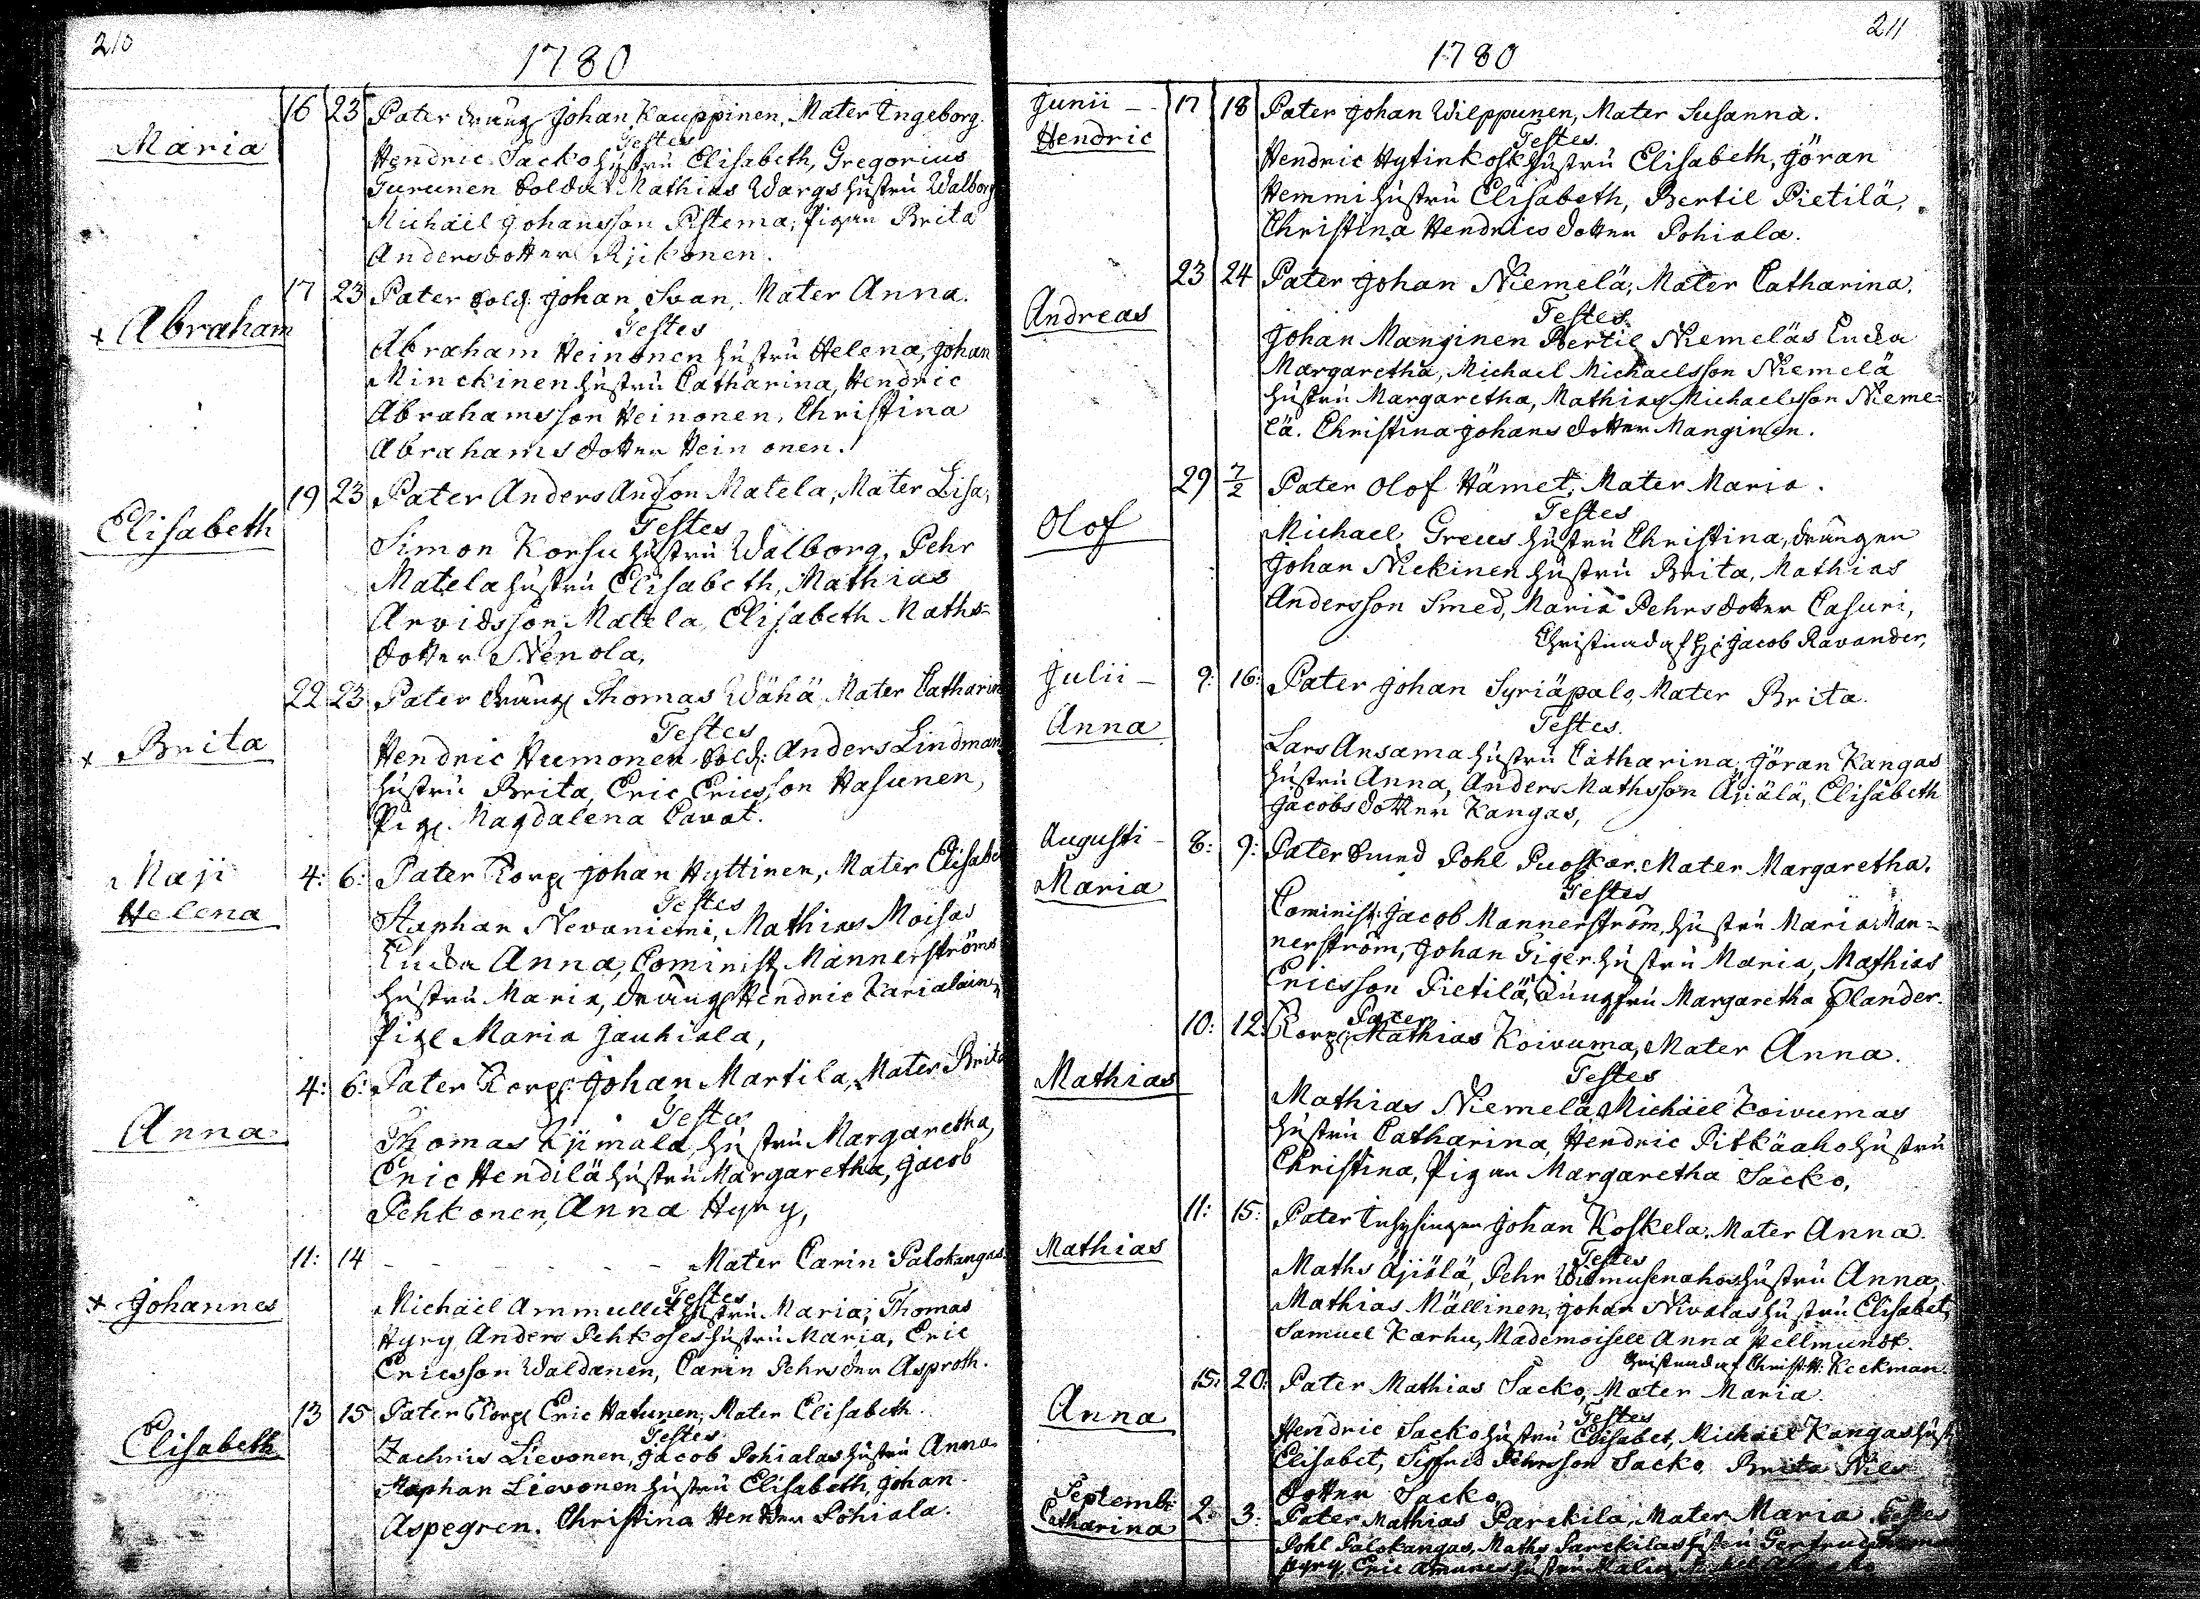 210
1780
Maria
16 23 Pater dräng Johan Kauppinen, Mater Ingeborg.
Testes
Hendric Sacko hustru Elisabeth, Gregorius
Turunen Soldat Mathias Wargs hustru Walborg
Michäel Johansson Pistema, Pigan Brita
Andersdotter Rjikonen.
+ Abraham
17 23 Pater Sold: Johan Svan, Mater Anna.
Testes
Abraham Heinonen hustru Helena, Johan
Minckinen hustru Catharina, Hendric
Abrahamsson Heinonen, Christina
Abrahamsdotter Heinonen.
Elisabeth
19 23 Pater Anders Andson Matela, Mater Lisa,
Testes
Simon Korsu hustru Walborg, Pehr
Matela hustru Elisabeth, Mathias
Arvidsson Matela, Elisabeth Maths-
dotter Nenola,
+ Brita
22 23 Pater dräng Thomas Wähä, Mater Catharin
Testes
Hendric Humonen Sold: Anders Lindman
hustru Brita, Eric Ericsson Hasunen,
Pig: Magdalena Cavat.
Maji
Helena
4: 6: Pater Korp: Johan Hyttinen, Mater Elisabe
Testes
Staphan Nevaniemi, Mathias Moisas
Enka Anna, Cominist: Mannerströms
hustru Maria, dräng Hendric Karialainen
Pig: Maria Jauhiala,
Anna
4: 6: Pater Korp: Johan Martila, Mater Brita
Testes
Thomas Kjimala hustru Margaretha,
Eric Hendilä hustru Margaretha, Jacob
Pehkonen, Anna Hyry,
+ Johannes
11: 14 - - - - - - Mater Carin Palokangas
Testes
Michäel Ammullit hustru Maria, Thomas
Hyry Anders Pehkoses hustru Maria, Eric
Ericsson Waldanen, Carin Pehrsdter Asproth.
Elisabeth
13 15 Pater Korp: Eric Hatunen, Mater Elisabeth.
Testes
Zachris Lievonen, Jacob Pohialas hustru Anna
Staphan Lievonen hustru Elisabeth, Johan
Aspegren. Christina Hendter Pohiala.
211
1780
Junii -
Hendric
17 18 Pater Johan Wilppunen, Mater Susanna.
Testes.
Hendric Hytinkosk hustru Elisabeth, Göran
Hemmi hustru Elisabeth, Bertil Pietilä,
Christina Hendricsdotter Pohiala.
Andreas
23 24 Pater Johan Niemelä, Mater Catharina.
Testes.
Johan Manginen Bertil Niemeläs Enka
Margaretha, Michael Michaelsson Niemelä
hustru Margaretha, Mathias Michaelsson Nieme-
lä. Christina Johansdotter Manginen.
Olof
29 7/2 Pater Olof Hämet, Mater Maria.
Testes
Michael Greus hustru Christina, drängen
Johan Niekinen hustru Brita, Mathias
Andersson Smed, Maria Pehrsdotter Casuri,
Christnad af H: Jacob Ravander,
Julii -
Anna
9: 16: Pater Johan Syriäpalo, Mater Brita.
Testes.
Lars Ansama hustru Catharina, Göran Kangas
hustru Anna, Anders Mathsson Äjiälä, Elisabeth
Jacobsdotter Kangas,
Augusti -
Maria
8: 9: Pater Smed Pohl Puoskar. Mater Margaretha.
Testes
Cominist: Jacob Mannerström, hustru Maria Man-
nerström, Johan Tiger hustru Maria, Mathias
Ericsson Pietilä, Jungfru Margaretha Flander.
Mathias
10: 12: Pater
Korp: Mathias Koivuma, Mater Anna.
Testes
Mathias Niemelä, Michäel Koivumas
hustru Catharina, Hendric Pitkäaho hustru
Christina, Pigan Margaretha Sacko,
Mathias
11: 15: Pater Inhysingen Johan Koskela, Mater Anna.
Testes
Maths Äjiölä, Pehr hustru Anna,
Mathias Mällinen, Johan Nivalas hustru Elisabet,
Samuel Karhu, Mademoisell Anna Hellmundt.
Christnad af Christ: H: Keckman.
Anna
15: 20: Pater Mathias Sacko, Mater Maria
Testes
Hendric Sacko hustru Elisabet, Michäel Kangas hust
Elisabet, Sigfrid Pehrsson Sacko, Brita Nils
dotter Sacko
Septemb:
Catharina
2: 3: Pater Mathias Parckila, Mater Maria Testes
Pohl Palokangas, Maths Parckilas hustru Gertrud
Hyry, Eric hustru Malin